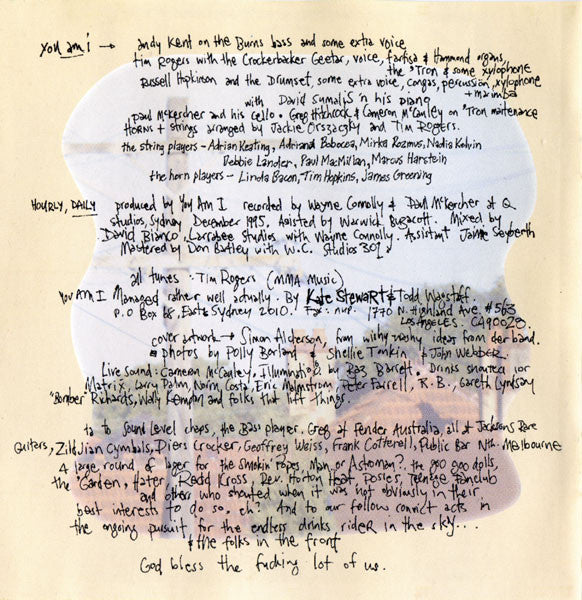 You am i → andy Kent on the Burns bass and some extra voice
Tim Rogers with the Crockerbacker Geetar, voice, farfisa & Hammond organs,
the 'Tron & some xylophone
Russell Hopkinson and the Drumset, some extra voice, congas, percussion, xylophone
+ marimba
with David Sumalis 'n his piano
Paul McKercher and his cello. Greg Hitchcock & Cameron McCauley on 'Tron maitenance
Horns + strings arranged by Jackie Orszaczky and Tim Rogers.
the string players - Adrian Keating, Adriand Bobocea, Mirka Rozmus, Nadia Kolvin
Debbie Lander, Paul MacMillan, Marcus Harstein
the horn players - Linda Bacon, Tim Hopkins, James Greening
HOURLY, DAILY produced by You Am I recorded by Wayne Connolly & Paul McKercher at Q
studios, Sydney December 1995. Assisted by Warwick Bugacott. Mixed by
David Bianco, Larrabee Studios with Wayne Connolly. Assistant Jamie Seyberth
Mastered by Don Bartley with W.C. Studios 301
all tunes · Tim Rogers (MMA Music)
You Am I Managed rather well actually. By Kate Stewart & Todd Wagstaff.
P.O Box 68, East Sydney 2010. Fax: nup. 1770 N. Highland Ave. #563
Los Angeles. CA90028.
cover artwork → Simon Alderson, from wishy washy ideas from der band.
photos by Polly Borland & Shellie Tonkin & John Webber.
Live Sound: Cameron McCauley, Illumination by Baz Barrett. Drinks shouted for
Matrix, Larry Palm, Norm, Costa, Eric Malmstrom, Peter Farrell, R.B., Gareth Lyndsay
"Bomber" Richards, Wally Kempton and folks that lift things.
ta to Sound Level chaps, the Bass player. Greg at Fender Australia, all at Jacksons Rare
Guitars, Zildjian Cymbals, Piers Crocker, Geoffrey Weiss, Frank Cotterell, Public Bar Nth. Melbourne
A large round of lager for the Smokin' Popes, Man or Astroman?, the goo goo dolls,
the 'Garden, Hater, Redd Kross, Rev. Horton Heat, Posies, Teenage Fanclub
and others who shouted when it was not obviously in their
best interests to do so. eh? And to our fellow convict acts in
the ongoing pursuit for the endless drinks rider in the sky...
& the folks in the front
God bless the fucking lot of us.